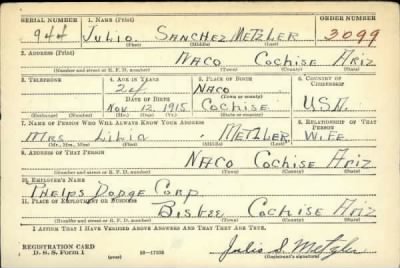 SERIAL NUMBER 1. NAME (Print) ORDER NUMBER
944 Julio SANCHEZ METZLER 3099
(First) (Middle) (Last)
2. ADDRESS (Print)
NACO Cochise Ariz
(Number and street or R. F. D. number) (Town) (County) (State)
3. TELEPHONE 4. AGE IN YEARS 5. PLACE OF BIRTH 6. COUNTRY OF CITIZENSHIP
24 Naco
DATE OF BIRTH (Town or county)
Nov. 12, 1915 Cochise USA.
(Exchange) (Number) (Mo.) (Day) (Yr.) (State or country)
7. NAME OF PERSON WHO WILL ALWAYS KNOW YOUR ADDRESS 8. RELATIONSHIP OF THAT PERSON
Mrs Lilia METZLER Wife
(Mr., Mrs., Miss) (First) (Middle) (Last)
9. ADDRESS OF THAT PERSON
NACO Cochise Ariz
(Number and street or R. F. D. number) (Town) (County) (State)
10. EMPLOYER'S NAME
Phelps Dodge Corp
11. PLACE OF EMPLOYMENT OR BUSINESS
Bisbee Cochise Ariz
(Number and street or R. F. D. number) (Town) (County) (State)
I AFFIRM THAT I HAVE VERIFIED ABOVE ANSWERS AND THAT THEY ARE TRUE.
REGISTRATION CARD
D. S. S. Form 1 (over) 16—17105 Julio S. Metzler
(Registrant's signature)